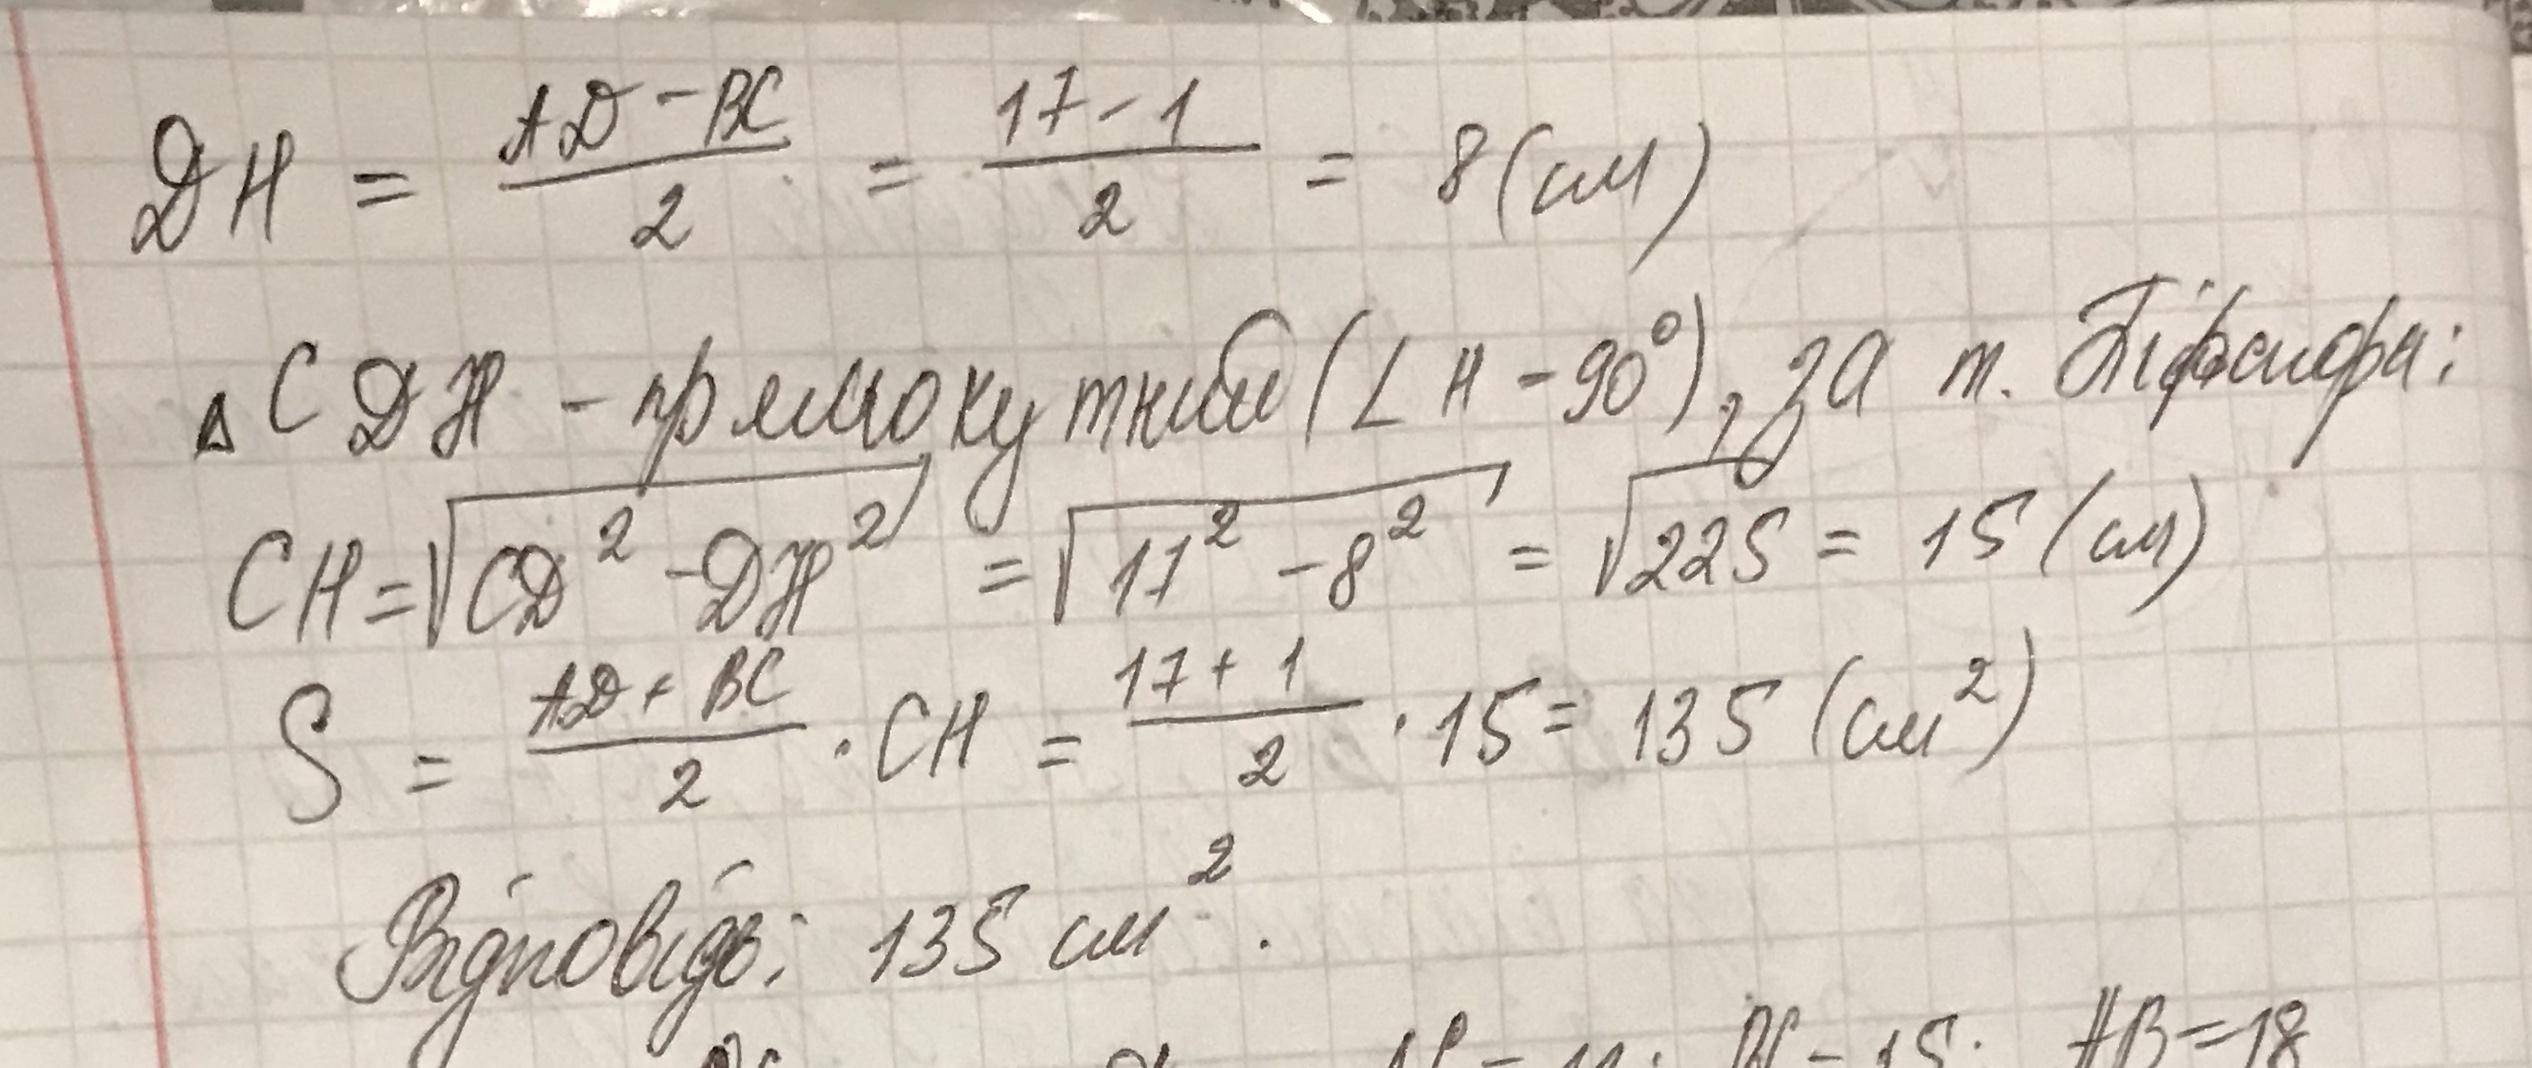 DH = (AD - BC)/2 = (17 - 1)/2 = 8 (см)
△CDH - прямокутний (∠H - 90°), за т. Піфагора:
CH = √(CD² - DH²) = √(17² - 8²) = √225 = 15 (см)
S = (AD + BC)/2 · CH = (17 + 1)/2 · 15 = 135 (см²)
Відповідь: 135 см².
= 15; AB = 18